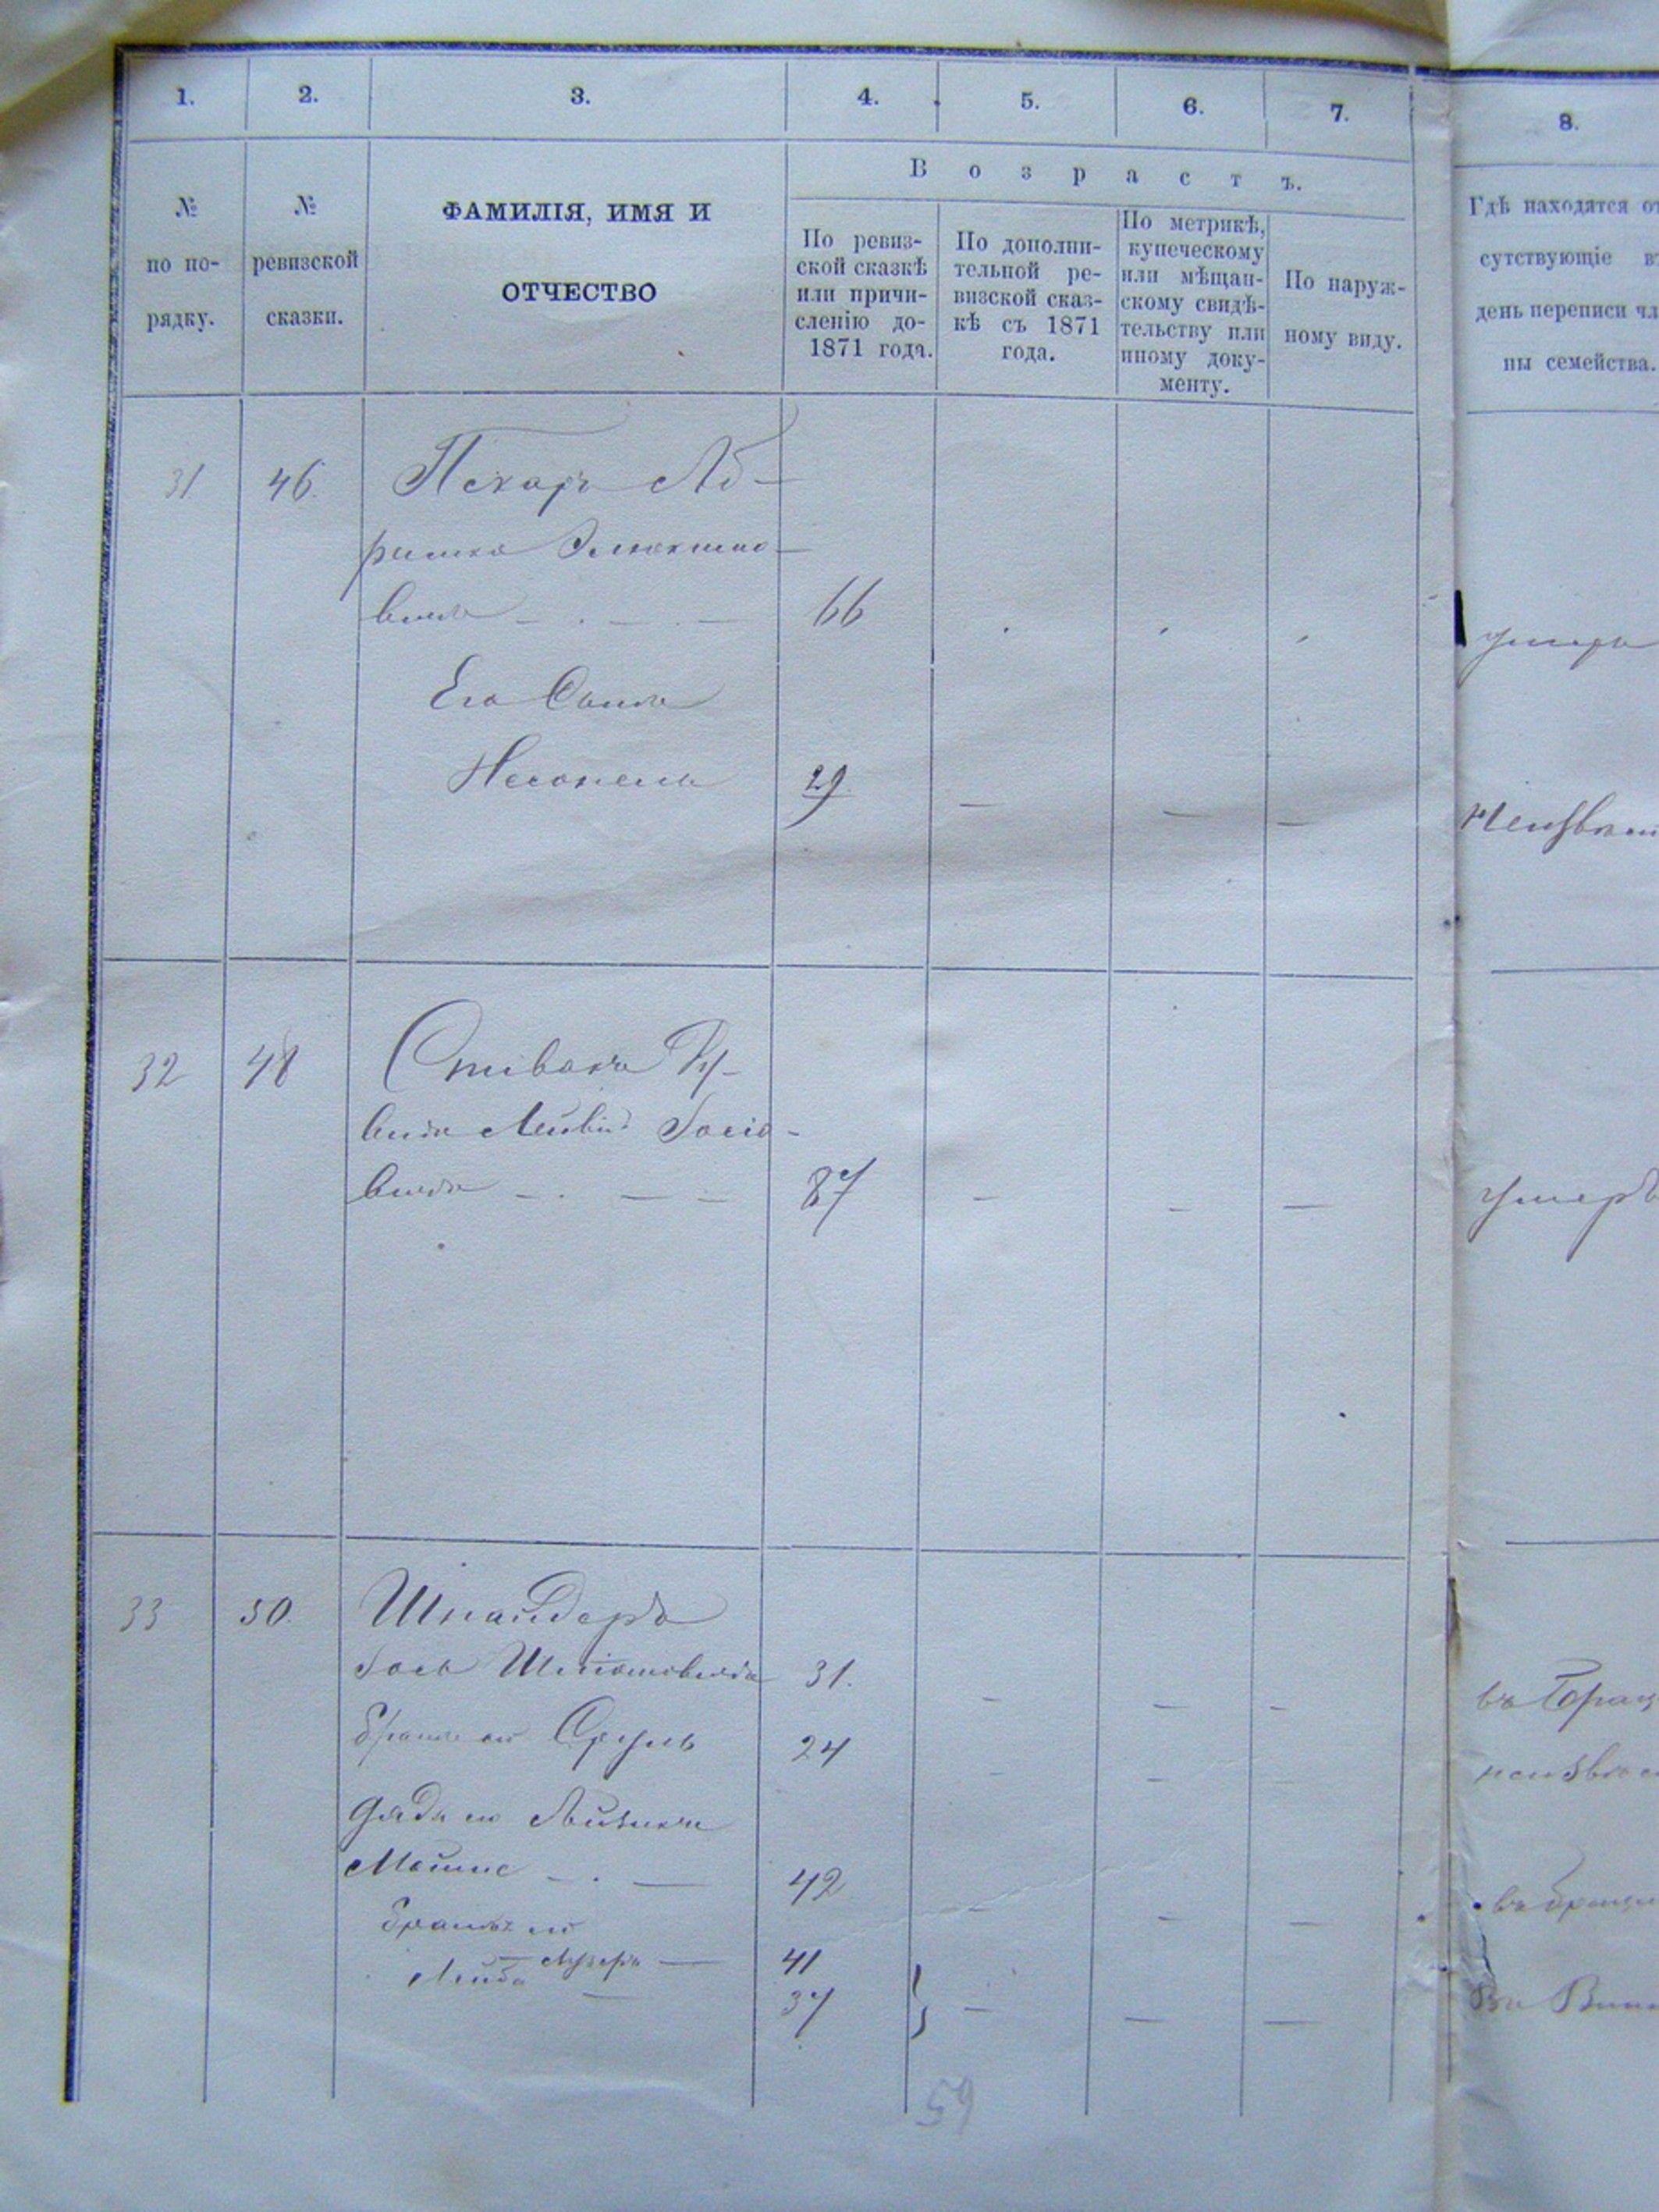 1.
2.
3.
4.
5.
6.
7.
8.
№ по по-
рядку.
№
ревизской
сказки.
ФАМИЛІЯ, ИМЯ И
ОТЧЕСТВО
Возрастъ.
По ревиз-
ской сказкѣ
или причи-
сленію до-
1871 года.
По дополни-
тельной ре-
визской сказ-
кѣ съ 1871
года.
По метрикѣ,
купеческому
или мѣщан-
скому свидѣ-
тельству или
иному доку-
менту.
По наруж-
ному виду.
Гдѣ находятся от
сутствующіе въ
день переписи чл
ны семейства.
31 46. Пекарь Аб-
рамко
вичъ 66 умеръ
Его Сынъ
29 Неизвѣст
32 48 Спивакъ
Лейвій Іосіо-
вичъ 87 умеръ
33 50. Шнайдеръ
Іось 31. въ Брац
братъ его Сруль 24 неизвѣс
дядя его Айзикъ
Мошко 42 въ Брацл
братья его
Лейба Лузеръ 41
37 Въ Винн
59